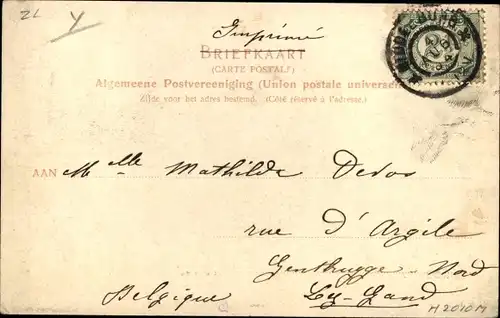 2L
Y
Imprimé
BRIEFKAART
(CARTE POSTALE)
Algemeene Postvereeniging (Union postale universelle)
Zijde voor het adres bestemd. (Côté réservé à l'adresse.)
AAN Mlle Mathilde Devos
rue d'Argile
Gentbrugge-Nord
Ly-Gand
Belgique
M2010M